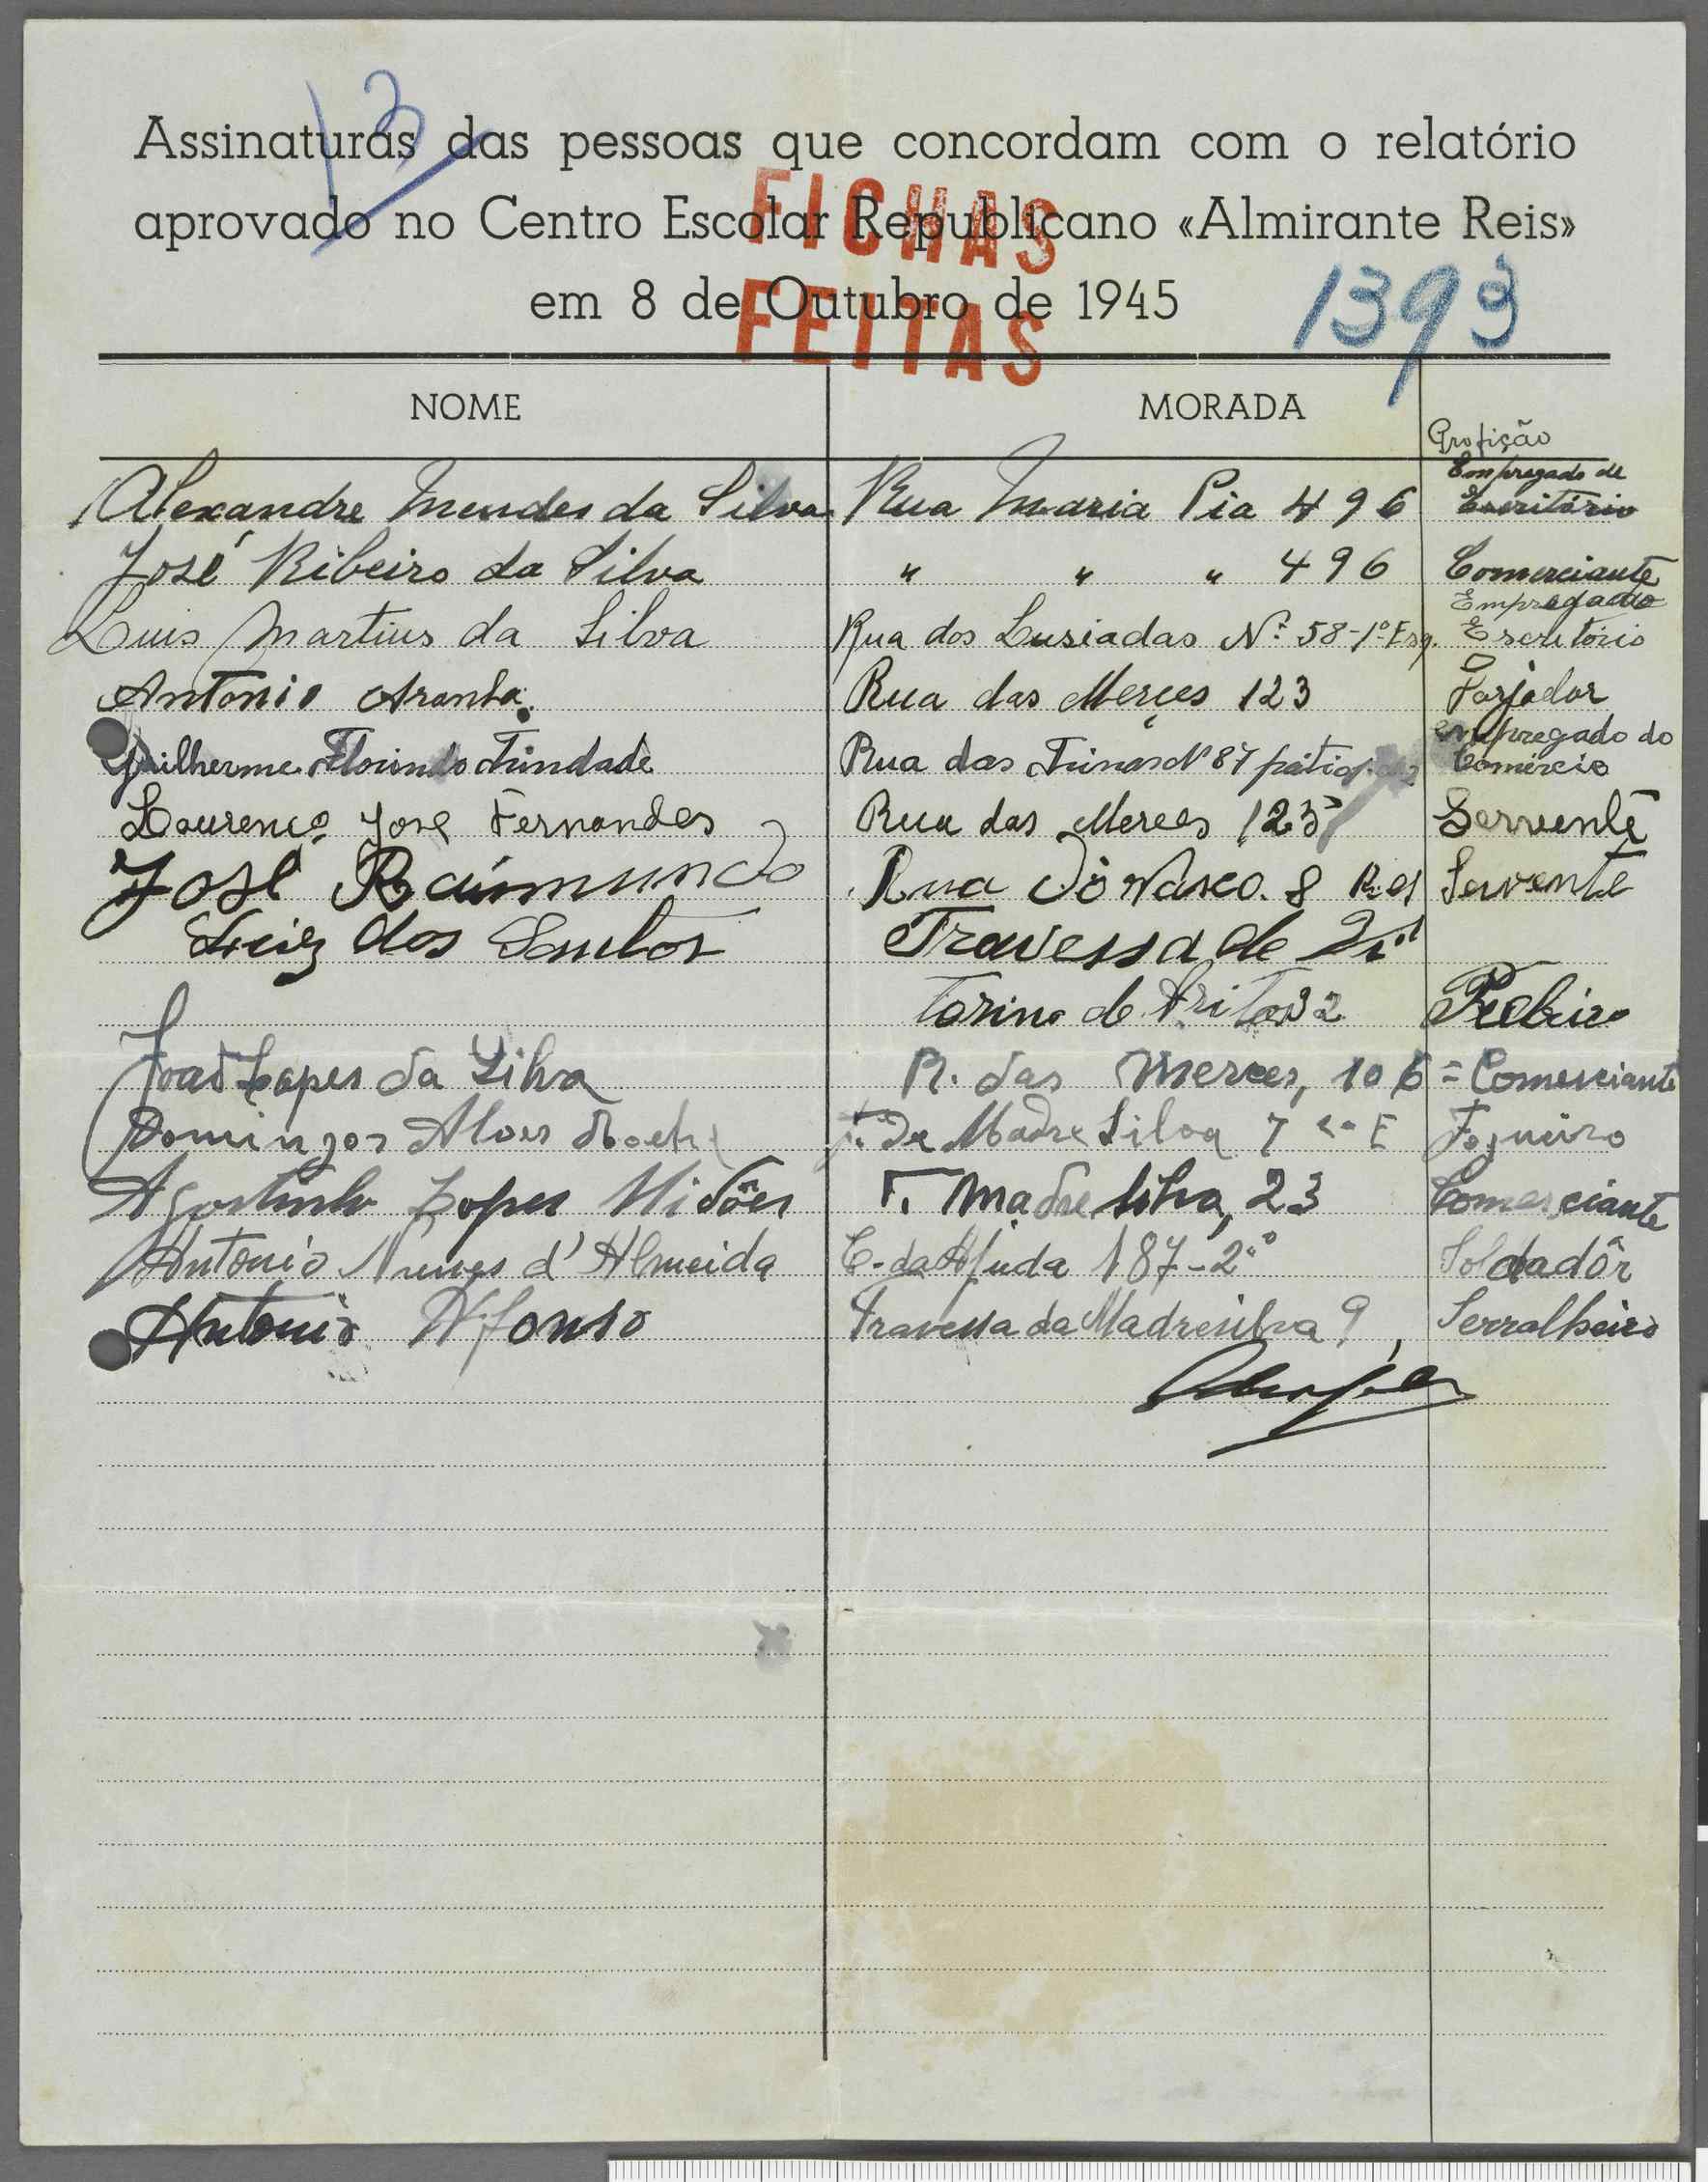 13
Assinaturas das pessoas que concordam com o relatório
aprovado no Centro Escolar Republicano «Almirante Reis»
em 8 de Outubro de 1945
FICHAS
FEITAS
1393
NOME MORADA Profição
Alexandre Mendes da Silva Rua Maria Pia 496 Empregado de Escritório
José Ribeiro da Silva " " " 496 Comerciante
Luis Martins da Silva Rua dos Lusiadas Nº 58-1º Esq. Empregado Escritório
Antonio Aranha Rua das Merçes 123 Forjador
Guilherme Florindo Trindade Rua das Trinas Nº 87 pátio empregado do Comércio
Lourenço José Fernandes Rua das Merces 123 Servente
José Raimundo Rua Vasco 8 Servente
Luiz dos Santos Travessa de
torino de Freitas 32 Pedreiro
João Lopes da Silva R. das Merces, 106 = Comerciante
Domingos Alves Rocha T. da Madre Silva 7 E Fogueiro
Agostinho Lopes Midões T. Madre silva, 23 Comerciante
Antonio Nunes d'Almeida C. da Ajuda 187-2º Soldadôr
Antonio Afonso Travessa da Madresilva 9, Serralheiro